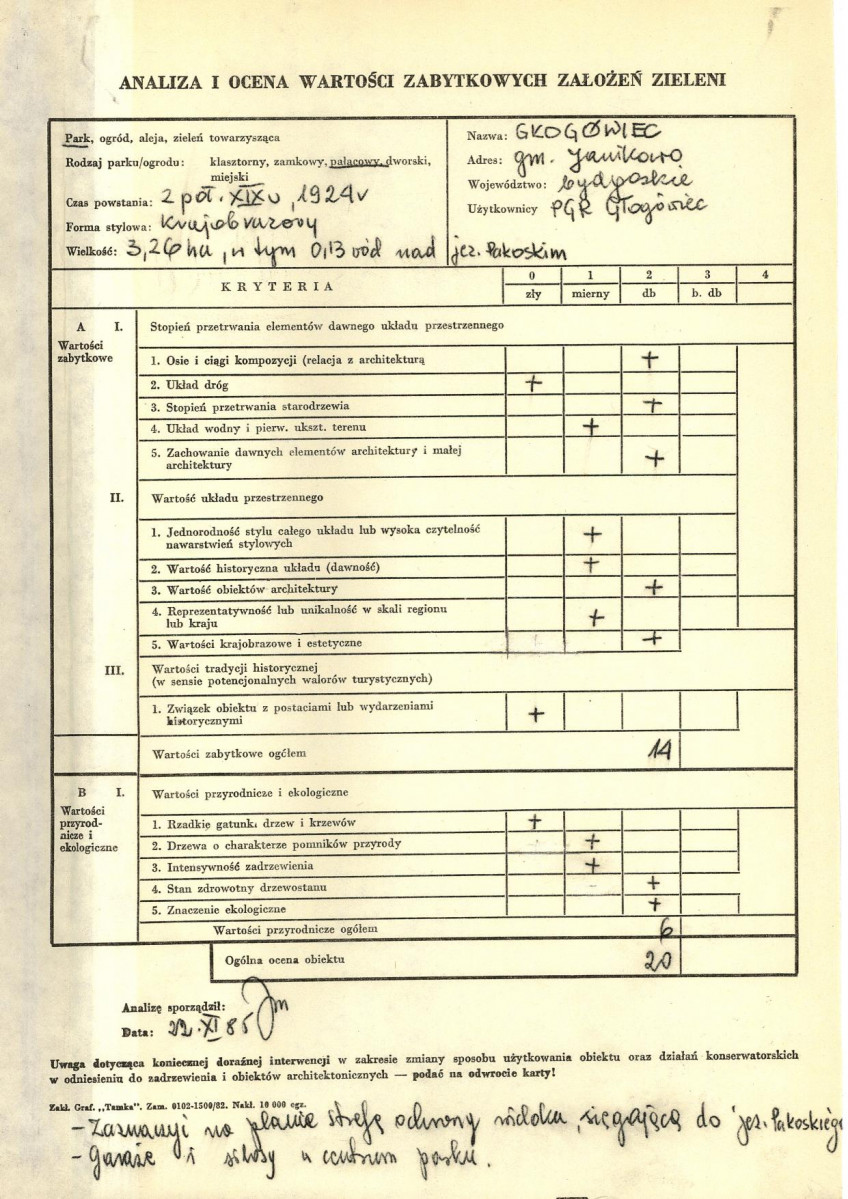 ANALIZA I OCENA WARTOŚCI ZABYTKOWYCH ZAŁOŻEŃ ZIELENI
Park, ogród, aleja, zieleń towarzysząca
Rodzaj parku/ogrodu: klasztorny, zamkowy, pałacowy, dworski,
miejski
Czas powstania: 2 poł. XIX w, 1924 r
Forma stylowa: Krajobrazowy
Wielkość: 3,26 ha, w tym 0,13 wód nad jez. Pakoskim
Nazwa: GŁOGOWIEC
Adres: gm. Janikowo
Województwo: bydgoskie
Użytkownicy PGR Głogówiec
KRYTERIA 0 1 2 3 4
zły mierny db b. db
A I. Stopień przetrwania elementów dawnego układu przestrzennego
Wartości
zabytkowe
1. Osie i ciągi kompozycji (relacja z architekturą +
2. Układ dróg +
3. Stopień przetrwania starodrzewia +
4. Układ wodny i pierw. ukszt. terenu +
5. Zachowanie dawnych elementów architektury i małej
architektury +
II. Wartość układu przestrzennego
1. Jednorodność stylu całego układu lub wysoka czytelność
nawarstwień stylowych +
2. Wartość historyczna układu (dawność) +
3. Wartość obiektów architektury +
4. Reprezentatywność lub unikalność w skali regionu
lub kraju +
5. Wartości krajobrazowe i estetyczne +
III. Wartości tradycji historycznej
(w sensie potencjonalnych walorów turystycznych)
1. Związek obiektu z postaciami lub wydarzeniami
historycznymi +
Wartości zabytkowe ogółem 14
B I. Wartości przyrodnicze i ekologiczne
Wartości
przyrod-
nicze i
ekologiczne
1. Rzadkie gatunki drzew i krzewów +
2. Drzewa o charakterze pomników przyrody +
3. Intensywność zadrzewienia +
4. Stan zdrowotny drzewostanu +
5. Znaczenie ekologiczne +
Wartości przyrodnicze ogółem 6
Ogólna ocena obiektu 20
Analizę sporządził:
Data: 22.XI 85
Uwaga dotycząca koniecznej doraźnej interwencji w zakresie zmiany sposobu użytkowania obiektu oraz działań konserwatorskich
w odniesieniu do zadrzewienia i obiektów architektonicznych — podać na odwrocie karty!
Zakł. Graf. „Tamka". Zam. 0102-1500/82. Nakł. 10 000 egz.
- Zaznaczyć na planie strefę ochrony widoku, sięgającą do jez. Pakoskiego
- Garaże i silosy w centrum parku.